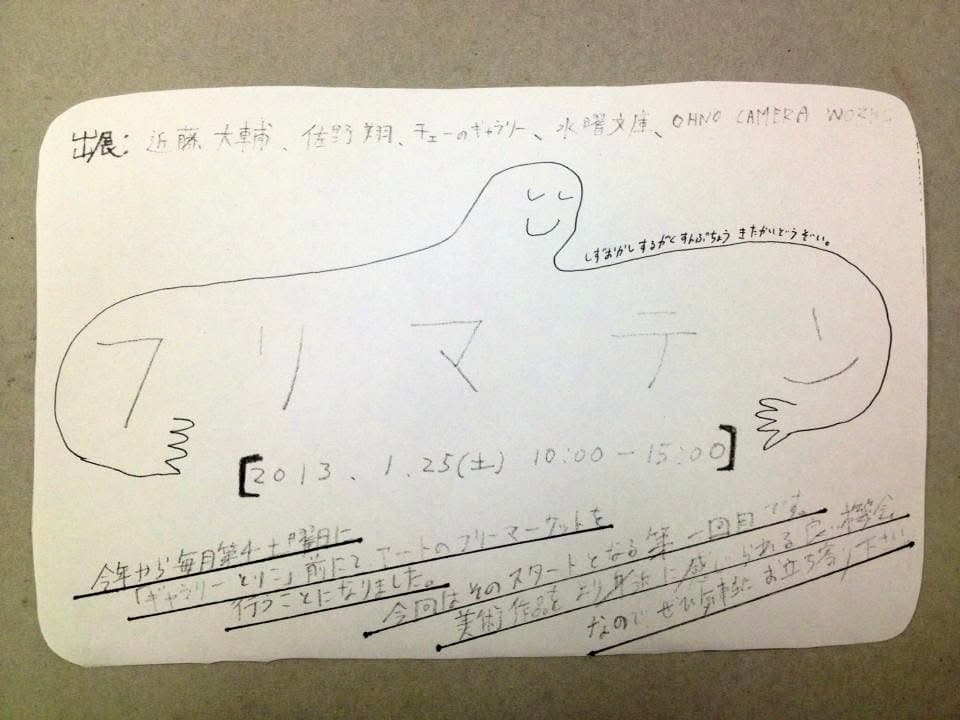 出展: 近藤 大輔、佐野 翔、チェーのギャラリー、水曜文庫、OHNO CAMERA WORKS
しずおかしするがくすんぷちょう きたがいどうぞい。
フリマテン
[2013、1.25(土) 10:00-15:00]
今年から毎月第4土曜日に
「ギャラリーとりこ」前にてアートのフリーマーケットを
行うことになりました。
今回はそのスタートとなる第一回目です。
美術作品をより身近に感じられる良い機会
なのでぜひ気軽にお立ち寄り下さい